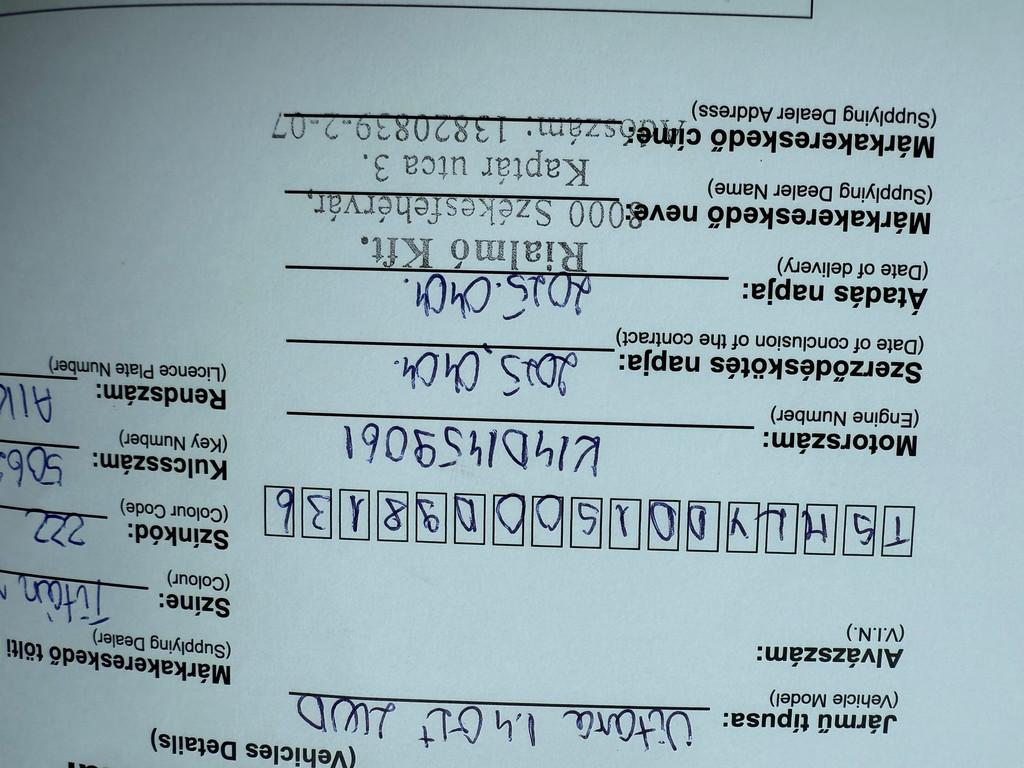 (Vehicles Details)
Jármű típusa: Vitara 1.4 GL+ 2WD
(Vehicle Model)
Alvázszám:
(V.I.N.)
TSMLYDD1S00D98136
Motorszám: K14D1459061
(Engine Number)
Szerződéskötés napja: 2025.04.04.
(Date of conclusion of the contract)
Átadás napja: 2025.04.04.
(Date of delivery)
Rialmó Kft.
Márkakereskedő neve: 8000 Székesfehérvár,
(Supplying Dealer Name)
Kaptár utca 3.
Márkakereskedő címe: Adószám: 13820839-2-07
(Supplying Dealer Address)
Márkakereskedő tölti
(Supplying Dealer)
Színe: Titán
(Colour)
Színkód: 222
(Colour Code)
Kulcsszám: 506
(Key Number)
Rendszám: AIK
(Licence Plate Number)